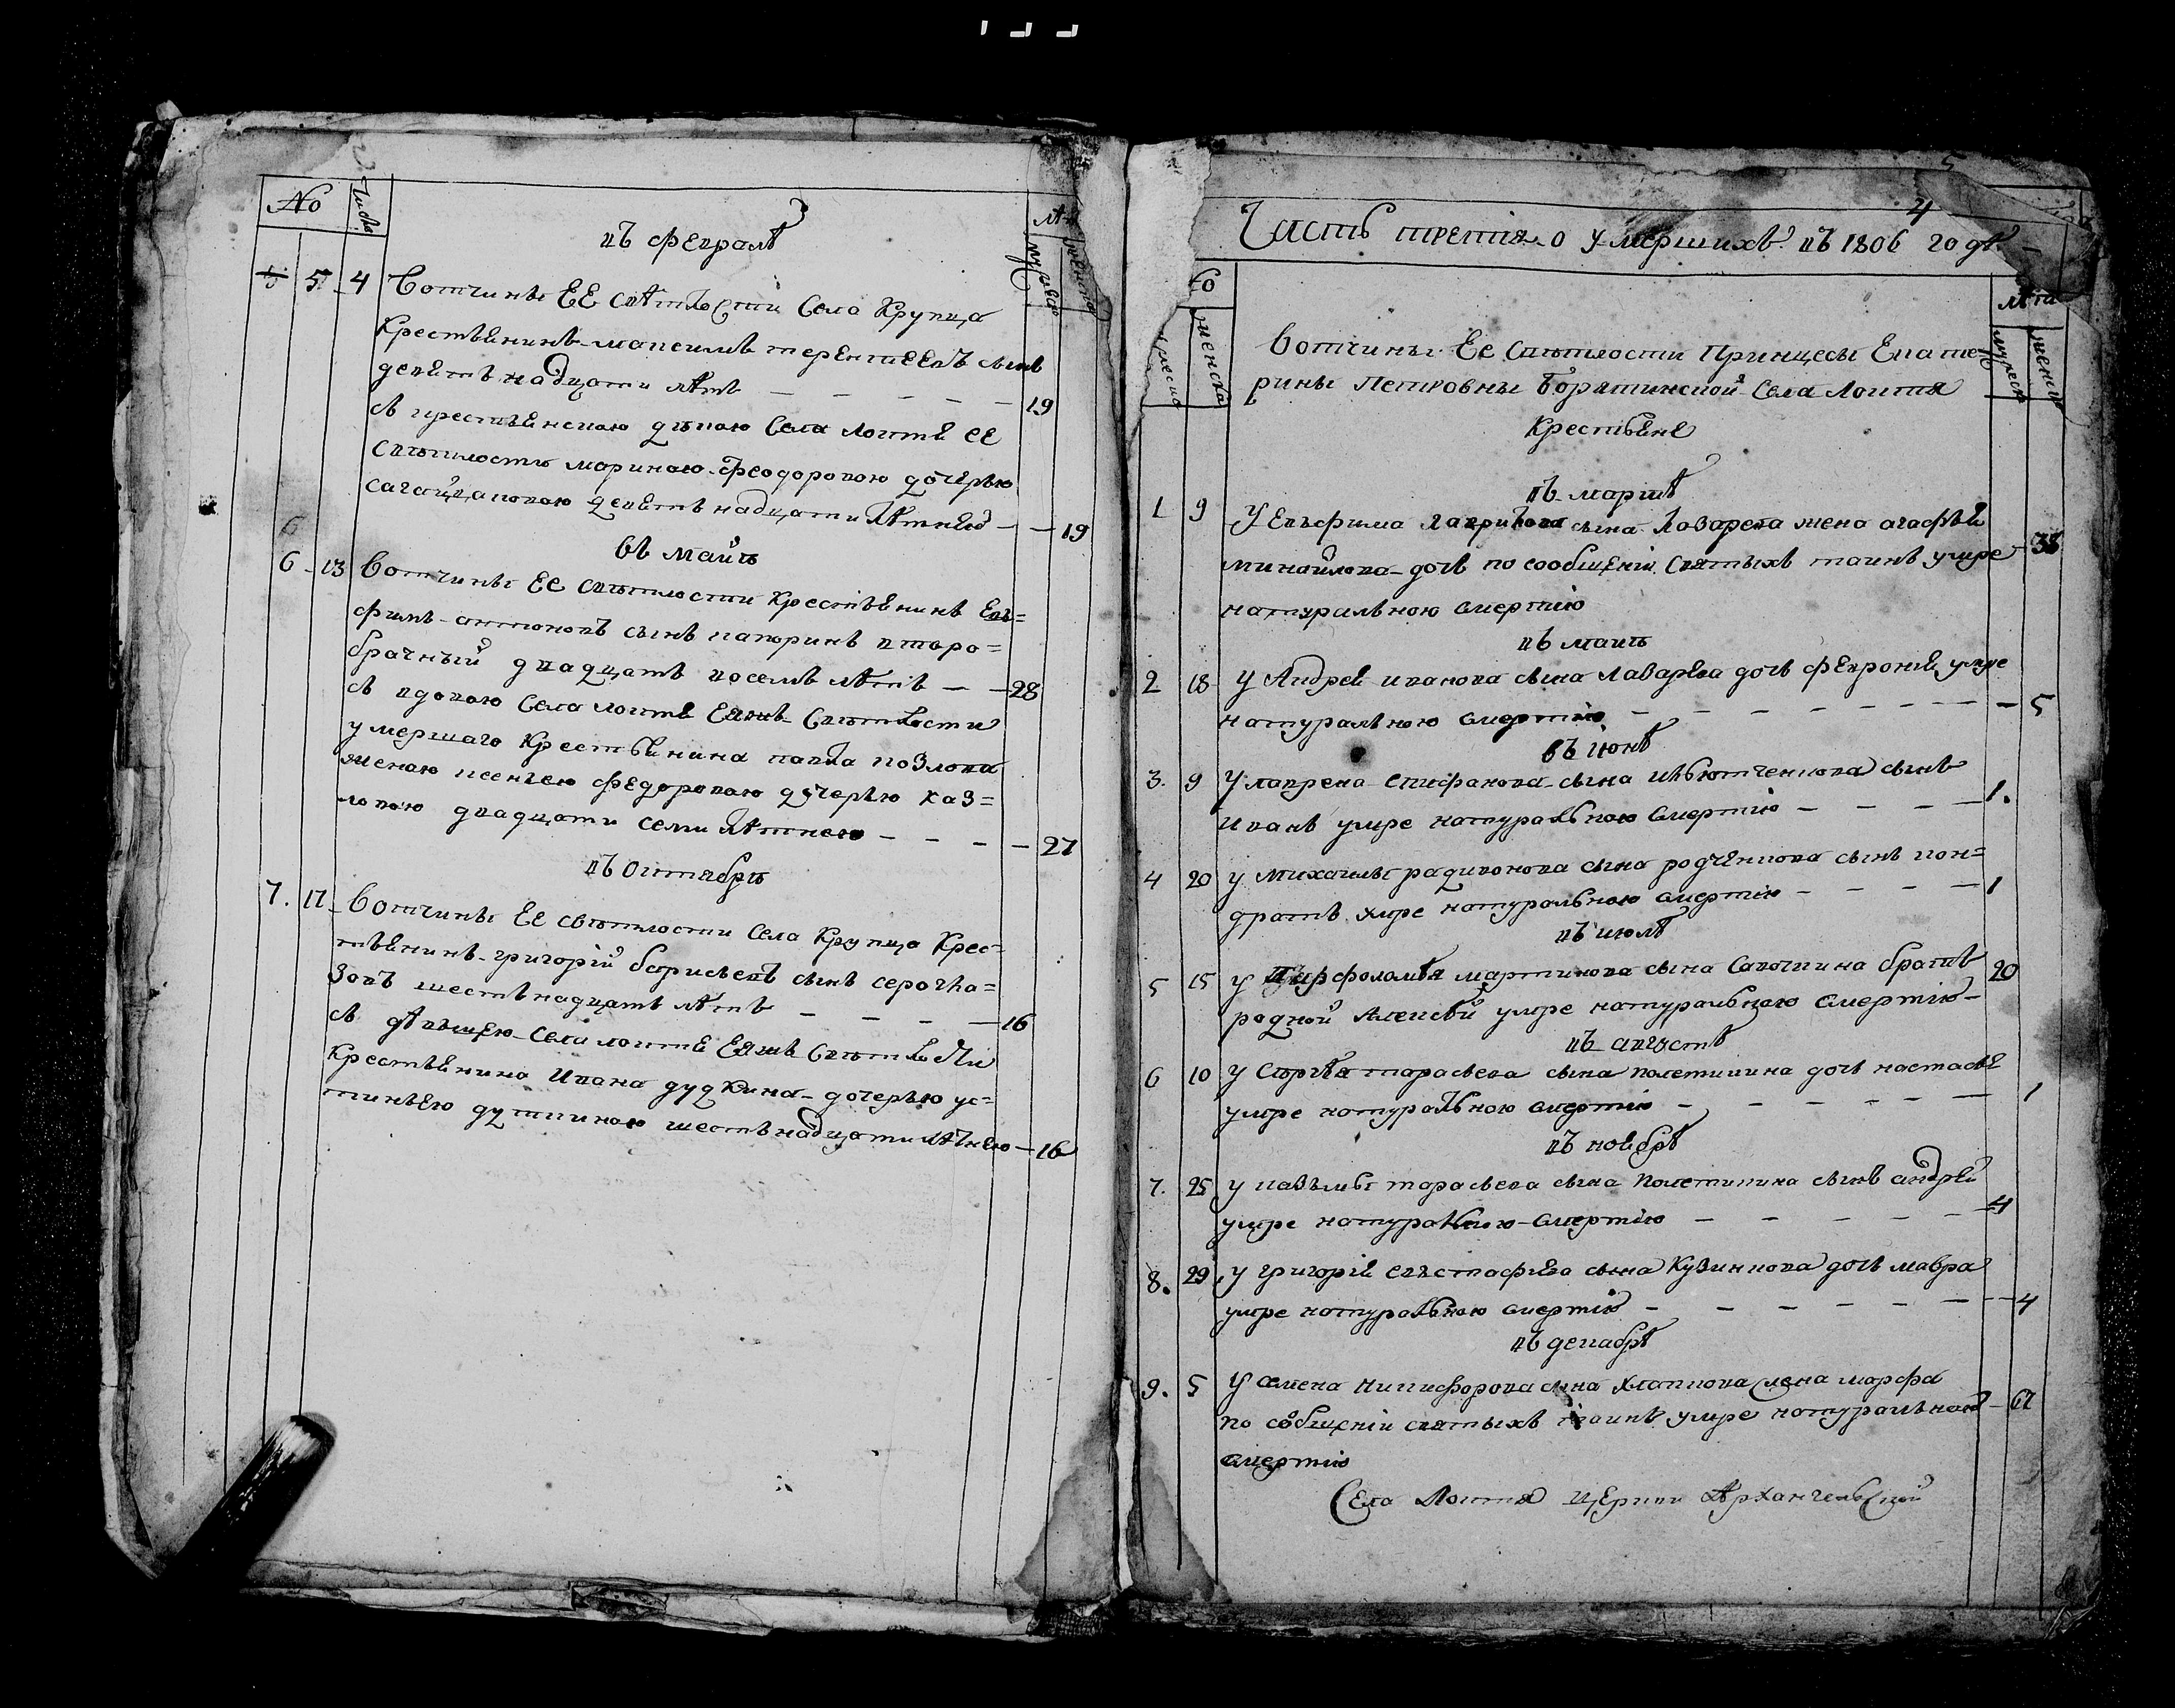 № Число
Лѣ
мужеска
женска
въ февралѣ
5 5 4 Вотчины ЕЕ свѣтлости Села Крупца
Крестьянинъ максимъ терентиевъ сынъ
девять надцати лѣтъ — — — — — 19
съ крестьянскою дѣвкою Села локтя ее
свѣтлости мариною феодоровою дочерью
девять надцати лѣтнею — — 19
6
въ маие
6 13 Вотчины ЕЕ свѣтлости Крестьянинъ Евъ=
фимъ антоновъ сынъ второ=
брачный двадцать восемъ лѣтъ — — 28
съ вдовою Села локтя Еяжъ свѣтлости
умершаго Крестьянина павла козлова
женою ксениею федоровою дочерью каз=
ловою двадцати семи лѣтнею — — — — 27
въ октябре
7. 17 Вотчины ЕЕ свѣтлости Села Крупца Крес=
тьянинъ григорій борисьевъ сынъ
шесть надцать лѣтъ — — — — 16
съ дѣвицею Села локтя Еяжъ свѣтлости
Крестьянина Ивана дудкина дочерью ус=
тиньею дуткиною шесть надцати лѣтнею — 16
5
4
Часть третія о умершихъ въ 1806 годѣ
женска
Лѣта
мужеск
женск
Вотчины Ее свѣтлости Принцесы Екате
рины Петровны Борятинской Села Локтя
Крестьяне
въ мартѣ
1 9 У Евъфима гаврилова сына Лазарева жена агафья
михайлова дочь по сообщеніи святыхъ таинъ умре 38
натуральною смертію
въ маие
2 18 У Андрея иванова сына Лазарева дочь феврония умре
натуральною смертию — — — — — — — 5
въ іюнѣ
3. 9 У лаврена епифанова сына сынъ
иванъ умре натуральною смертію — — — — 1.
4 20 у михаилы радивонова сына родченкова сынъ кон=
дратъ умре натуральною смертію — — — — 1
въ июлѣ
5 15 у марфоломѣя мартинова сына савочкина братъ 20
родной Алексѣй умре натуральною смертію
въ августѣ
6 10 у Сергѣя тарасьева сына полетикина дочь настасья
умре натуральною смертію — — — — — — 1
въ ноябрѣ
7. 25 у казьмы тарасьева сына Полетикина сынъ андрей
умре натуральною смертію — — — — — 4
8. 29 у григорія евъстафьева сына Кузинкова дочь мавра
умре натуральною смертію — — — — — — 4
въ декабрѣ
9. 5 У семена никифорова сына жена марфа
по собщеніи святыхъ таинъ умре натуральною 67
смертію
Села Локтя Церкви Архангельской